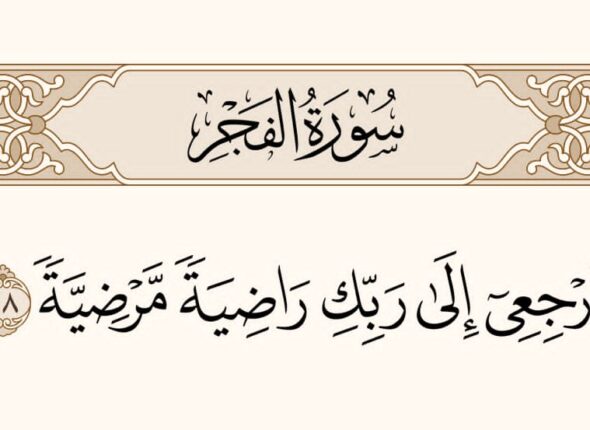 سُورَةُ الفَجْرِ
رْجِعِىٓ إِلَىٰ رَبِّكِ رَاضِيَةً مَّرْضِيَّةً ٨